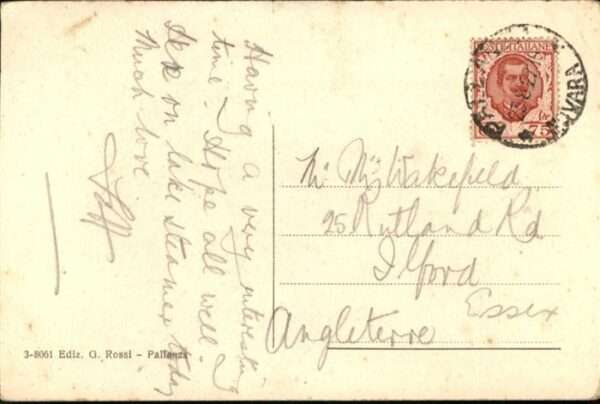 Having a very interesting
time. Hope all well. I
on lake steamer today
Much love
Mr Mrs Wakefield
25 Rutland Rd
Ilford
Essex
Angleterre
3-8061 Ediz. G. Rossi - Pallanza
POSTE ITALIANE
75